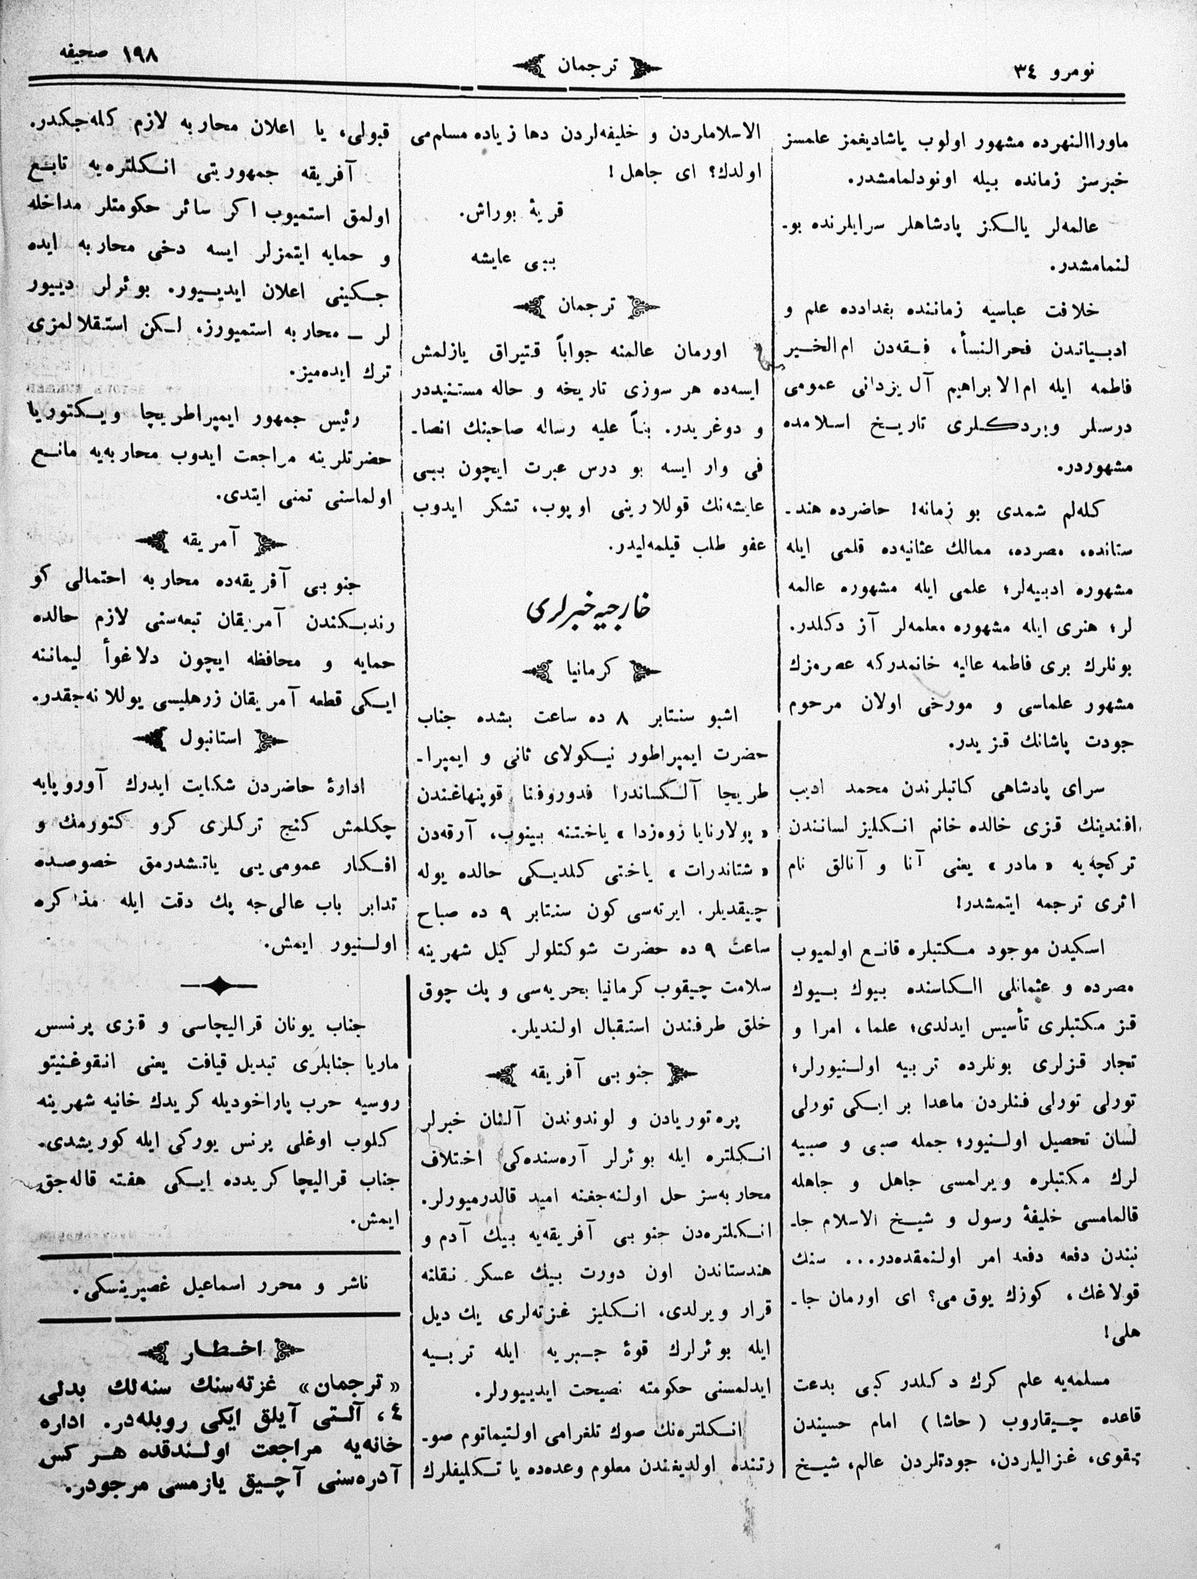 نومرو ٣٤
ترجمان
١٩٨ صحیفه
ماوراالنهرده مشهور اولوب یاشادیغمز علمسز
خبرسز زمانده بیله اونودلمامشدر.
عالمه‌لر یالـکز پادشاهلر سرایلرنده بو۔
لنمامشدر.
خلافت عباسیه زماننده بغدادده علم و
ادبـیاتدن فخرالنسأ، فـقه‌دن ام‌الخـیر
فاطمه ایله ام‌الابراهیم آل یزدانی عمومی
درسلر ویردکلری تاریـخ اسلامده
مشهوردر.
کله‌لم شمدی بو زمانه! حاضرده هند۔
ستانده، مصرده، ممالك عثانیه‌ده قلمی ایله
مشهوره ادبیه‌لر؛ علمی ایله مشهوره عالمه
لر؛ هنری ایله مشهوره معلمه‌لر آز دکلدر.
بونلرك بری فاطمه عالیه خانمدرکه عصرمزك
مشهور علماسی و مورخی اولان مرحوم
جودت پاشانك قـزیدر.
سرای پادشاهی کاتبلرندن محمد ادیب
افندینك قزی خالده خانم انـکلیز لساننـدن
ترکچه‌یه «مادر» یعنی آنا و آنالق نام
اثری ترجمه ایتمشدر!
اسکیدن موجود مـکتبلره قانـع اولمیوب
مصرده و عثمانلی الـکاسنده بیوك بـیوك
قـز مـکتبلری تأسیس ایدلدی؛ علما، امرا و
تجار قـزلری بونلرده تربیه اولـنیورلر؛
تورلی تورلی فنلردن ماعدا بر ایـکی تورلی
لسان تحصیل اولـنیور؛ جمله صبی و صبیه
لرك مـکتبلره ویرلمسی جاهل و جاهله
قالمامسی خلیفۀ رسول و شیـخ الاسلام جا۔
نبندن دفعه دفعه امر اولـنمقده‌در... سنك
قولاغك، کوزك یوق می؟ ای اورمان جا۔
هلی!
مسلمه‌یه علم کرك دکـلدر کبی بدعت
قاعده چـیقاروب (حاشا) امام حسیندن
تقوی، غـزالیلردن، جودتلردن عالم، شیـخ
الاسلاملردن و خلیفه‌لردن دها زیاده مسلم‌می
اولدك؟ ای جاهل!
قریۀ بوراش.
ببی عایشه
ترجمان
اورمان عالمنه جواباً قـتیراق یازلمش
ایسه‌ده هر سوزی تاریخه و حاله مستـنیددر
و دوغریدر. بنـاً علیه رساله صاحبنك انصا۔
فی وار ایسه بو درس عبرت ایچون ببی
عایشه‌نك قوللارینی اوپوب، تشکر ایدوب
عفو طلب قیلمه‌لیدر.
خارجیه خبرلری
کرمانیا
اشبو سنتابر ٨ ده ساعت بشده جناب
حضرت ایمپراطور نیـکولای ثانی و ایمپرا۔
طریجا آلـکساندرا فدوروفنا قوپنهاغـندن
«پولارنایا زوه‌زدا» یاختنه بینوب، آرقه‌دن
«شتاندرات» یاختی کلدیـکی حالده یوله
چـیقدیلر. ایرته‌سی کون سنتابر ٩ ده صباح
ساعت ٩ ده حضرت شوکتلولر کیل شهرینه
سلامت چـیقوب کرمانیا بحریه‌سی و پك چوق
خلق طرفندن استقبال اولـندیلر.
جنوبی آفریقه
پره‌توریادن و لوندوندن آلـنان خبرلر
انـکلتره ایله بوئرلر آره‌سنده‌کی اختلاف
محاربه‌سز حل اولنه‌جغنه امید قالدرمیورلر.
انـکلتره‌دن جنوبی آفریقه‌یه بیـك آدم و
هندستاندن اون دورت بیـك عسکر نـقلنه
قرار ویرلدی. انـکلیز غـزته‌لری یك دیل
ایله بوئرلرك قوۀ جـبریه ایله تربـیه
ایدلمسنی حکومته نصیحت ایدیـیورلر.
انـکلتره‌نك صوك تلغرامی اولتیماتوم صو۔
رتنده اولدیغندن معلوم وعده‌ده یا تـکلیفلرك
قبولی، یا اعلان محاربه لازم کله‌جکدر.
آفریقه جمهوریتی انـکلتره‌یه تابـع
اولمق استمیوب اکر سائر حکومتلر مداخله
و حمایه ایتمزلر ایسه دخی محاربه ایده
جـکینی اعلان ایدیـیور. بوئرلر دیـیور
لر ــ محاربه استمیورز، لـکن استقلالمزی
ترك ایده‌میز.
رئیس جمهور ایمپراطریجا ویـکتوریا
حضرتلرینه مراجعت ایدوب محاربه‌یه مانـع
اولماسنی تمنی ایتدی.
آمریقه
جنوبی آفریقه‌ده محاربه احتمالی کو
رندیـکندن آمریقان تبعه‌سنی لازم حالده
حمایه و محافظه ایچون دلاغوأ لیماننه
ایـکی قطعه آمریقان زرهلیسی یوللانه‌جقدر.
استانبول
ادارۀ حاضردن شکایت ایدرك آوروپایه
چکلمش کنج ترکلری کرو کتورمك و
افـکار عمومی‌یی یاتـشدرمق خصوصـده
تدابر باب عالی‌جه پك دقت ایله مذاکره
اولـنیور ایمش.
جناب یونان قرالیچاسی و قـزی پرنسس
ماریا جنابلری تبدیل قیافت یعنی انقوغـنیتو
روسیه حرب پاراخودیله کریدك خانیه شهرینه
کلوب اوغلی پرنس یورکی ایله کوریشدی.
جناب قرالیچا کریدده ایـکی هفته قاله‌جق
ایمش.
ناشر و محرر اسماعیل غصپرینسکی.
اخـطار
«ترجمان» غزته‌سنك سنه‌لك بدلی
٤، آلـتی آیلق ایکی روبله‌در. اداره
خانه‌یه مراجعت اولـندقده هـر کس
آدره‌سنی آچـیق یازمسی مرجودر.